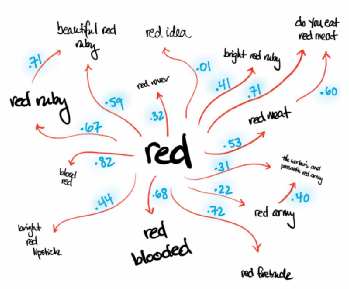 beautiful red
ruby
red idea
do you eat
red meat
.71
bright red ruby
.01
red ruby
red rover
.41
.71
.59
.32
.60
red meat
.67
.53
red
.82
blood
red
.31
the workers and
peasants red army
.22
.44
.68
.40
.72
red army
bright
red
lipstick
red
blooded
red firetruck